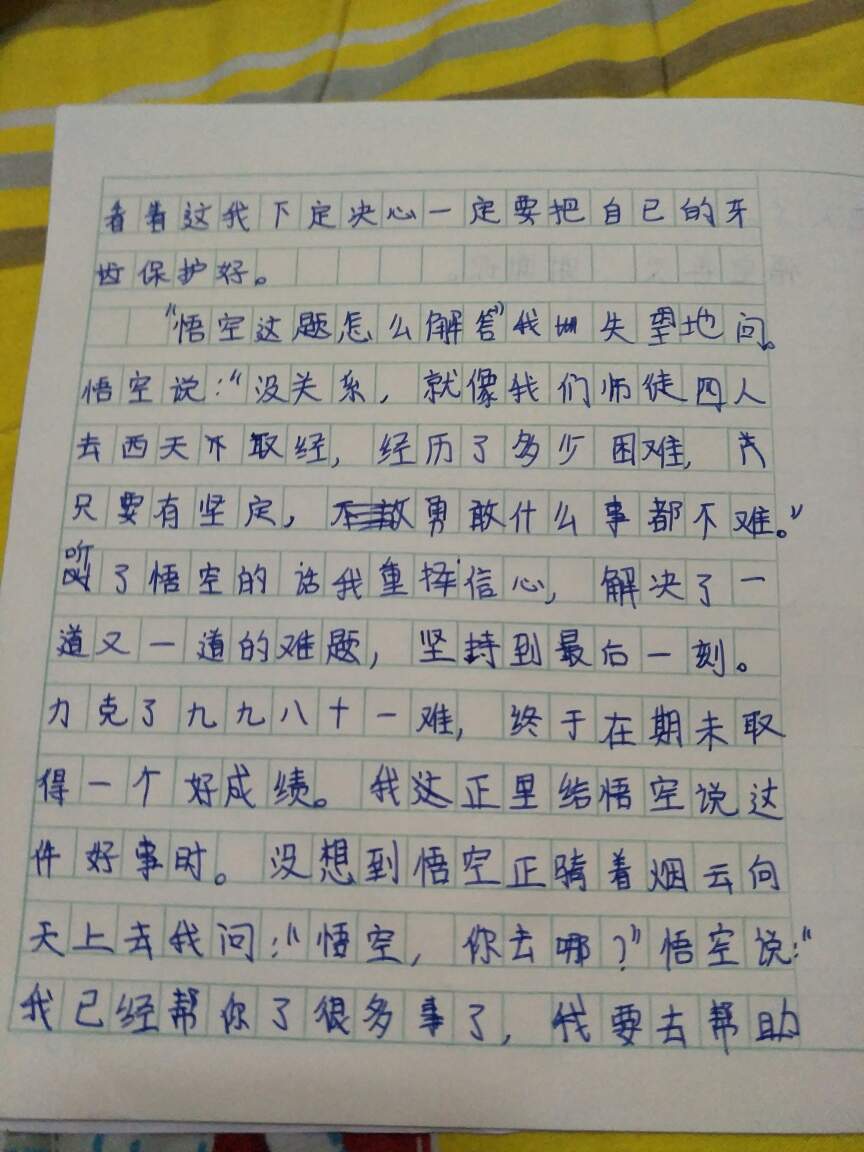 看着这我下定决心一定要把自已的牙
齿保护好。
"悟空这题怎么解答"我失望地问。
悟空说:"没关系,就像我们师徒四人
去西天取经,经历了多少困难,
只要有坚定,勇敢什么事都不难。"
听了悟空的话我重择信心,解决了一
道又一道的难题,坚持到最后一刻。
力克了九九八十一难,终于在期未取
得一个好成绩。我这正里给悟空说这
件好事时。没想到悟空正骑着烟云向
天上去我问:"悟空,你去哪?"悟空说:"
我已经帮你了很多事了,我要去帮助